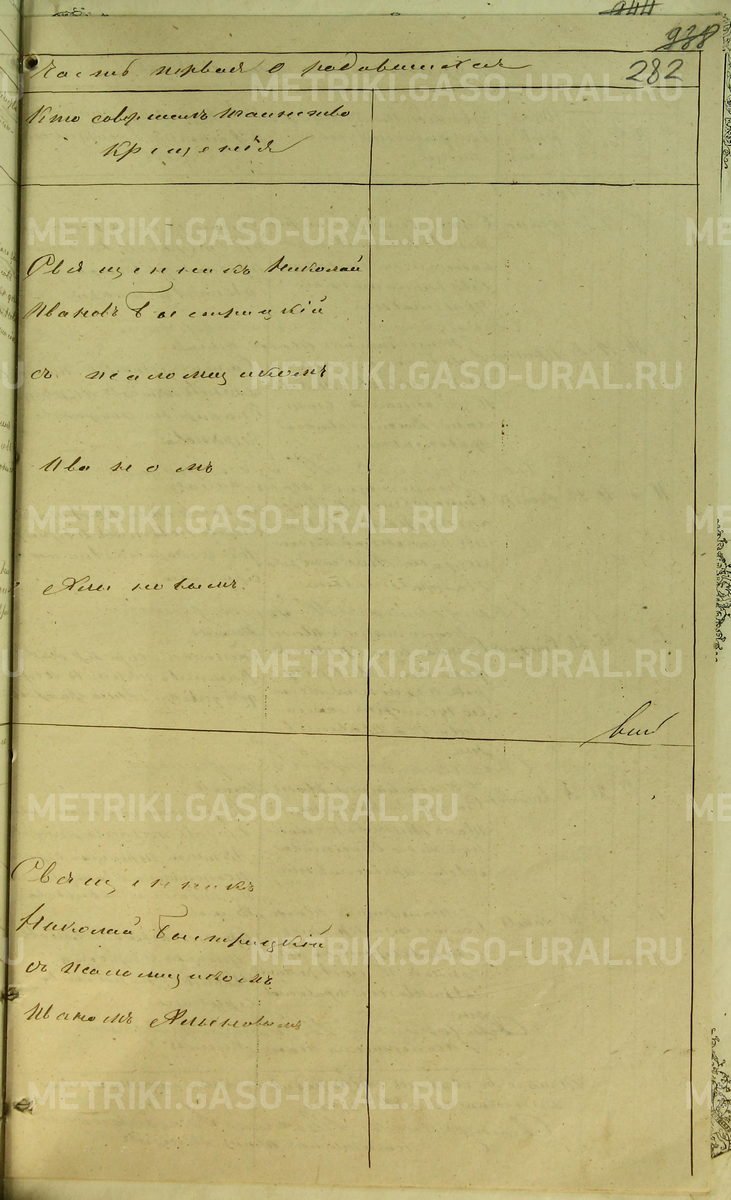 944
938
Часть первая о родившихся 282
Кто совершалъ таинство
крещенія
Священникъ Николай
Ивановъ Быстрицкій
съ псаломщикомъ
Иваномъ
Священникъ
Николай Быстрицкій
съ псаломщикомъ
Иваномъ
METRIKI.GASO-URAL.RU